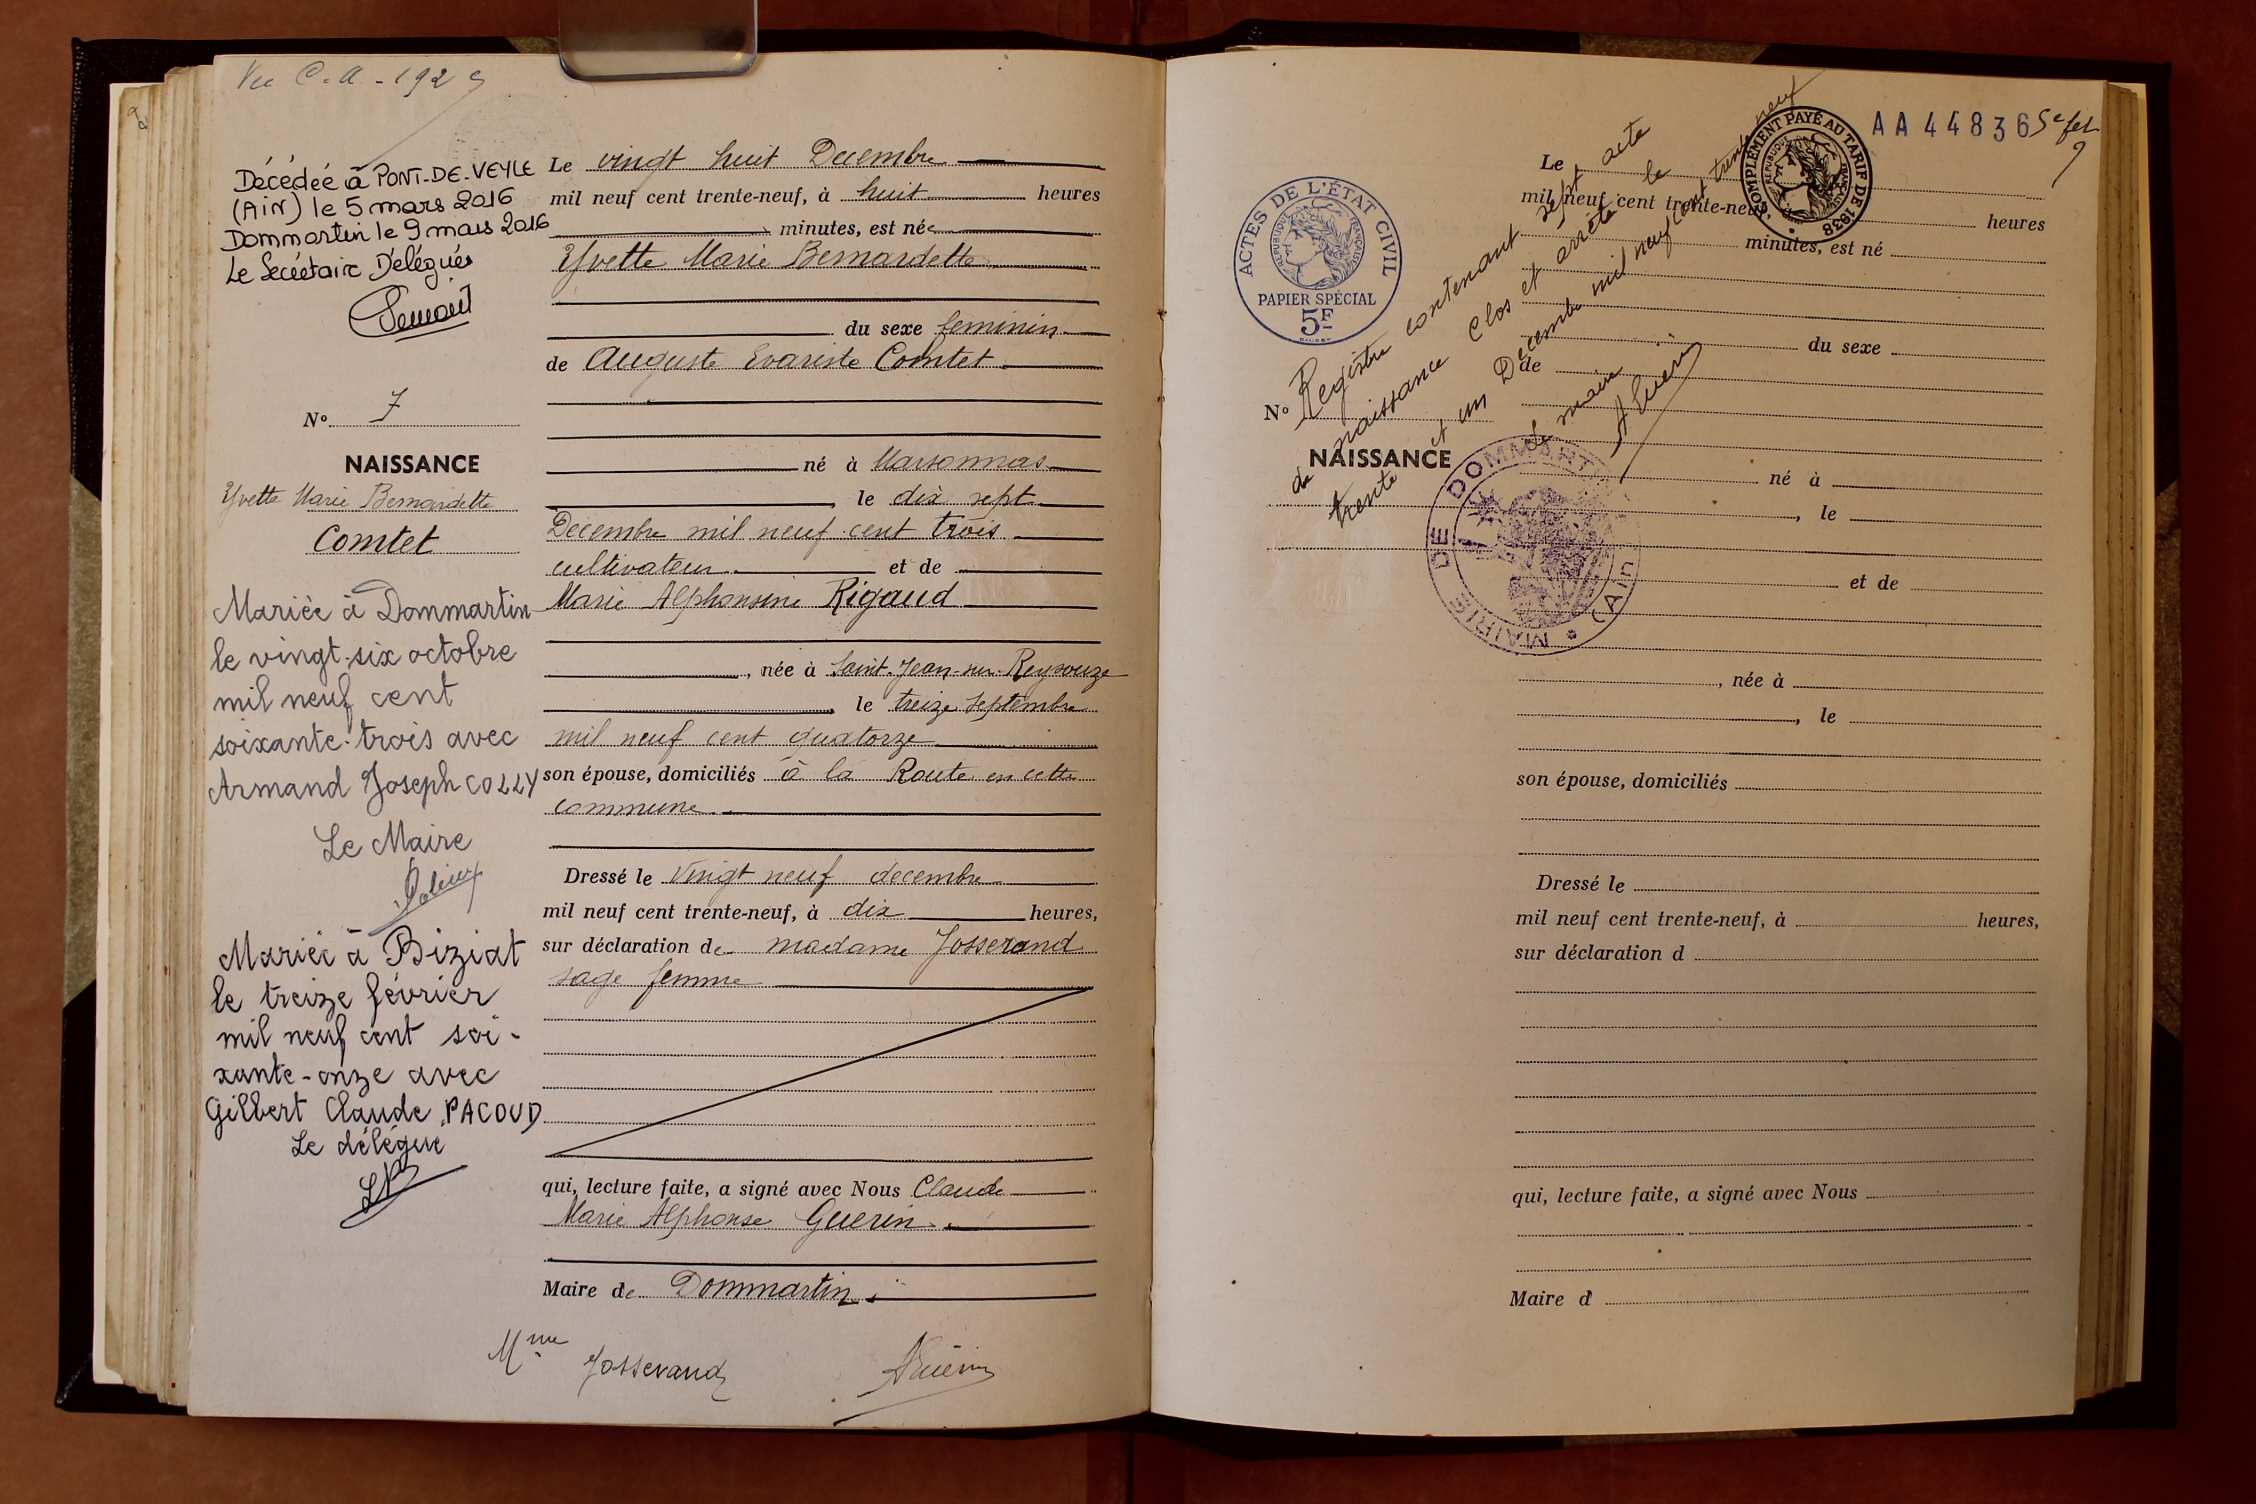 Vu C.A. 192
Décédée à PONT-DE-VEYLE
(AiN) le 5 mars 2016
Dommartin le 9 mars 2016
Le Secrétaire Délégué
N° 7
NAISSANCE
Yvette Marie Bernardette
Comtet
Mariée à Dommartin
le vingt-six octobre
mil neuf cent
soixante-trois avec
Armand Joseph COLLY
Le Maire
Mariée à Biziat
le treize février
mil neuf cent soi-
xante-onze avec
Gilbert Claude PACOUD
Le délégué
Le vingt huit Decembre
mil neuf cent trente-neuf, à huit heures
minutes, est née
Yvette Marie Bernardette
du sexe feminin
de Auguste Evariste Comtet
né à Marsonnas
le dix sept
Décembre mil neuf cent trois
cultivateur et de
Marie Alphonsine Rigaud
, née à Saint-Jean-sur-Reyssouze
le treize septembre
mil neuf cent quatorze
son épouse, domiciliés à la Route en cette
commune
Dressé le vingt neuf decembre
mil neuf cent trente-neuf, à dix heures,
sur déclaration de madame Josserand
sage femme
qui, lecture faite, a signé avec Nous Claude
Marie Alphonse Guerin
Maire de Dommartin
Mme Josserand AGuérin
AA 44836 5e fet
9
COMPLÉMENT PAYÉ AU TARIF DE 1938
RÉPUBLIQUE FRANÇAISE
ACTES DE L'ÉTAT CIVIL
RÉPUBLIQUE FRANÇAISE
PAPIER SPÉCIAL
5F
Registre contenant sept acte
de naissance Clos et arrêté le
trente et un Decembre mil neuf cent trente neuf
Le maire
AGuérin
MAIRIE DE DOMMARTIN * (Ain)
N°
NAISSANCE
Le
mil neuf cent trente-neuf, heures
minutes, est né
du sexe
de
né à
, le
et de
, née à
, le
son épouse, domiciliés
Dressé le
mil neuf cent trente-neuf, à heures,
sur déclaration d
qui, lecture faite, a signé avec Nous
Maire d